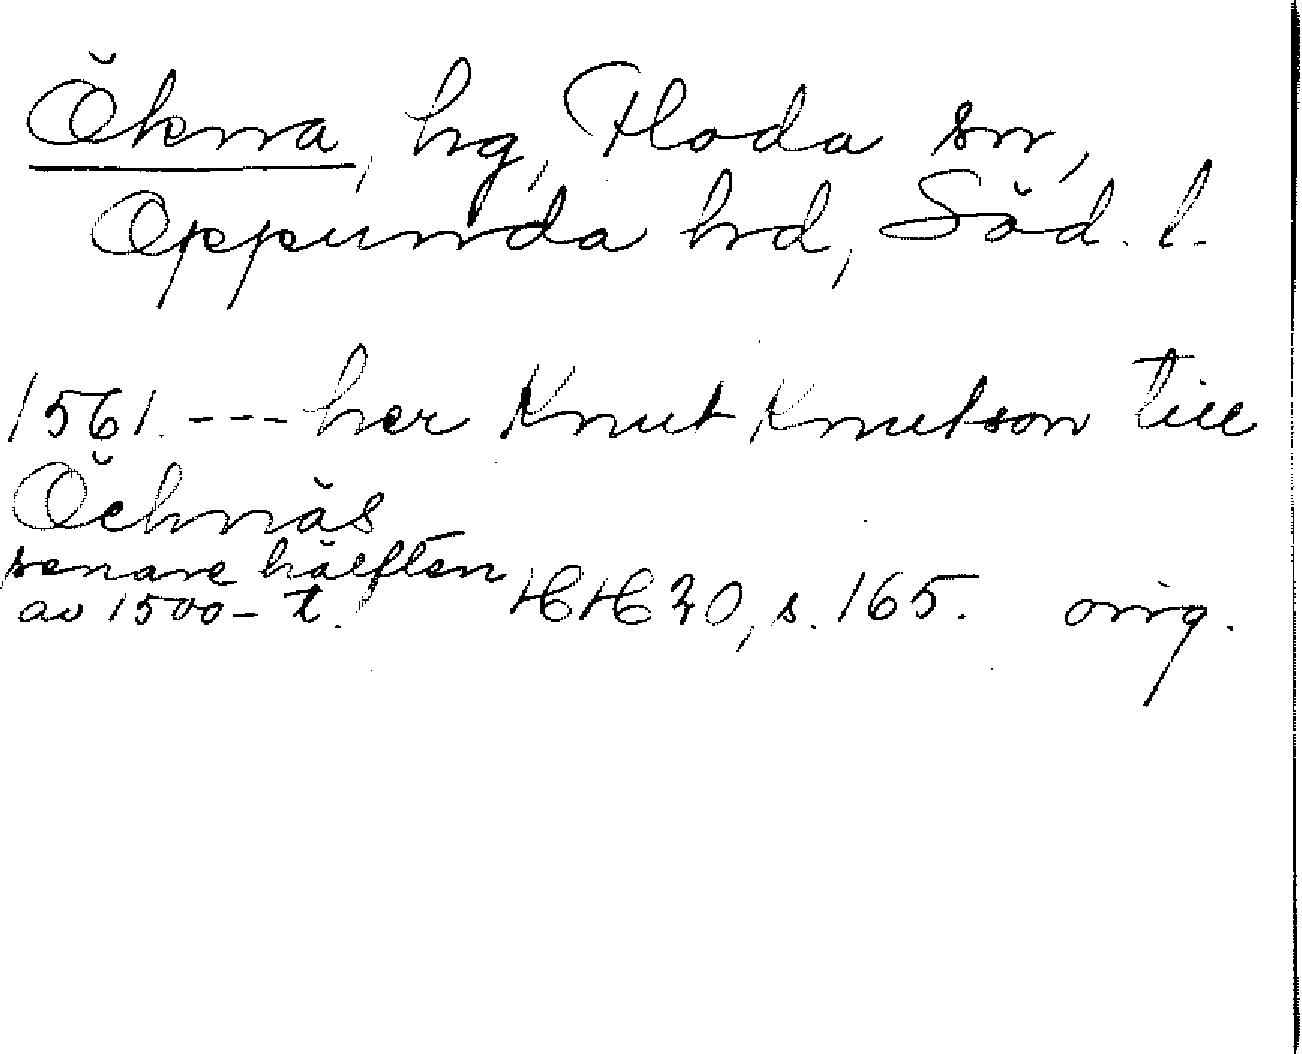 Ökna, hg, Floda sn,
Oppunda hd, Söd. l.
1561. --- her Knut Knutson till
Öchnäs
senare hälften
av 1500-t. HH 20, s. 165. orig.